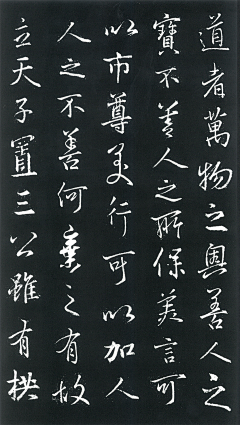 道者萬物之奧善人之
寶不善人之所保美言可
以市尊美行可以加人
人之不善何棄之有故
立天子置三公雖有拱